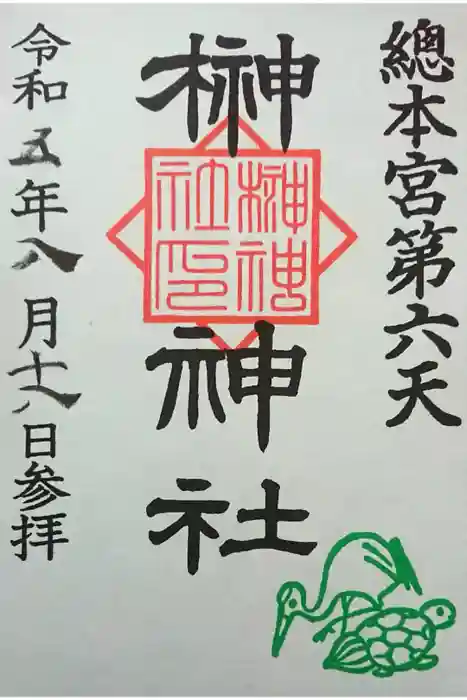 總本宮第六天
榊神社
榊神社印
令和五年八月十八日参拝